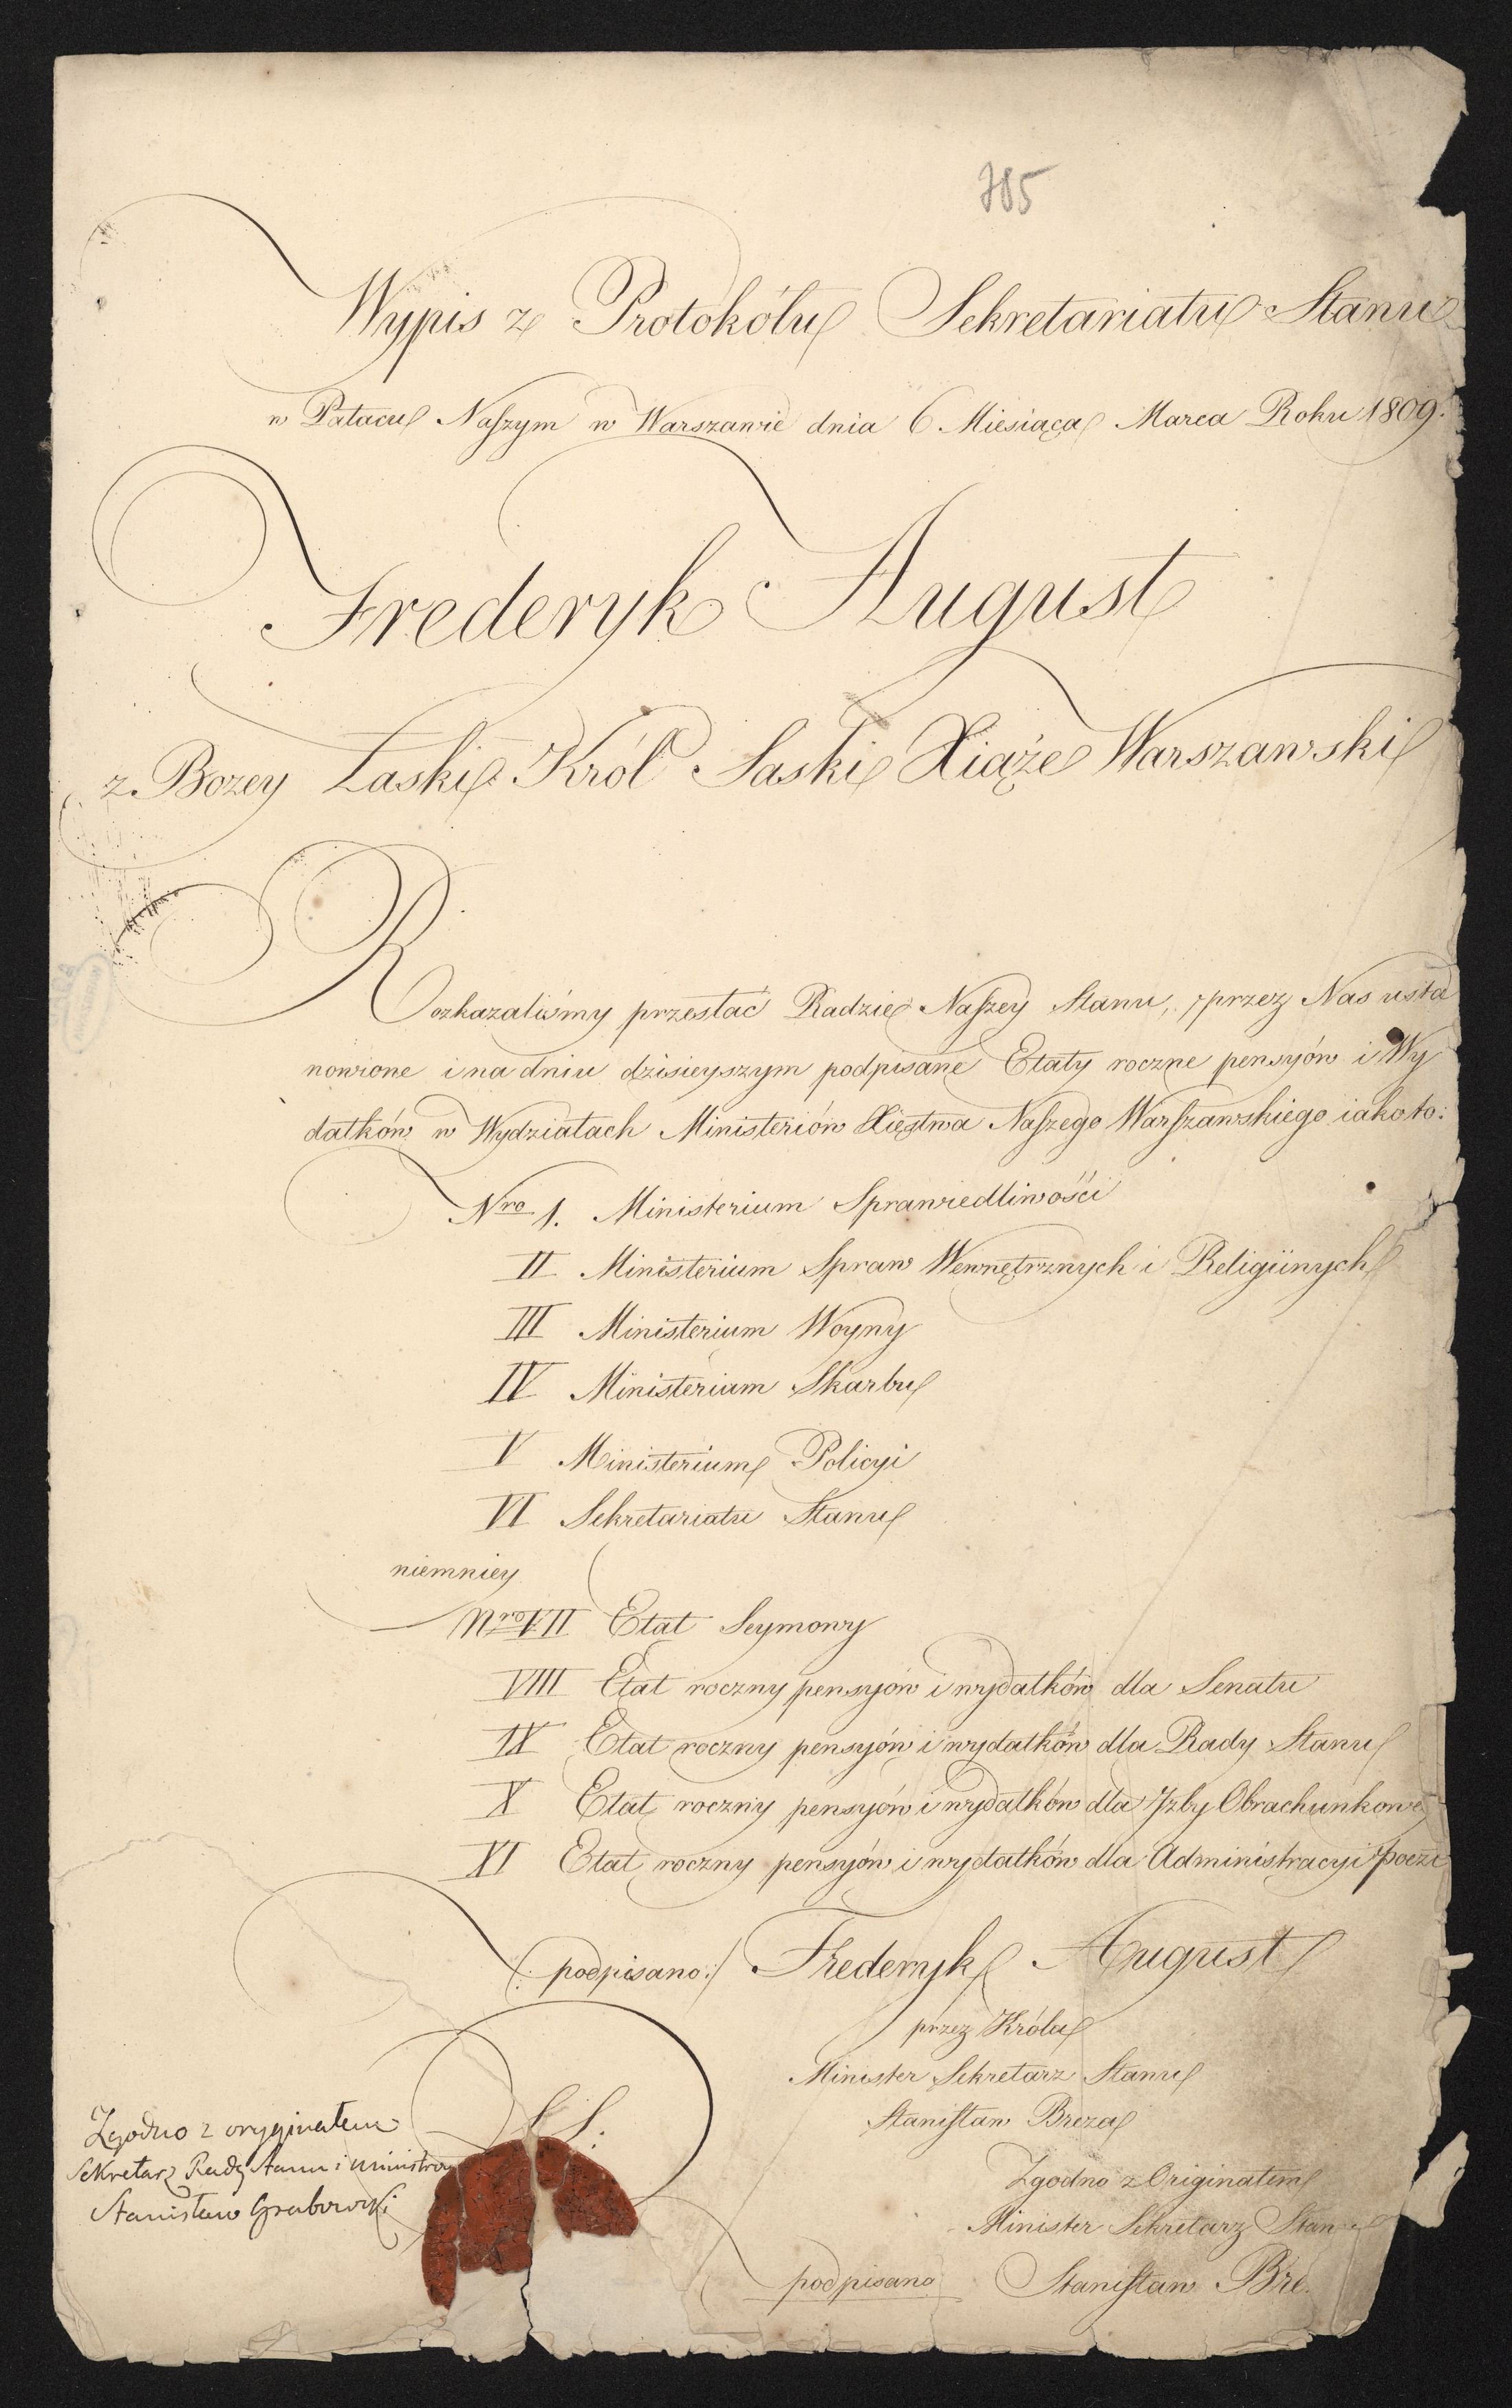 785
Wypis z Protokółu Sekretariatu Stanu
w Pałacu Naszym w Warszawie dnia 6 Miesiąca Marca Roku 1809.
Frederyk August
z Bozey Łaski Król Saski Xiąże Warszawski
Rozkazaliśmy przesłać Radzie Naszey Stanu, przez Nas usta
nowione i na dniu dzisieyszym podpisane Etaty roczne pensyów i Wy
datków w Wydziałach Ministeriów Xięstwa Naszego Warszawskiego iako to:
Nro 1. Ministerium Sprawiedliwości
II Ministerium Spraw Wewnętrznych i Religiinych
III Ministerium Woyny
IV Ministerium Skarbu
V Ministerium Policyi
VI Sekretariatu Stanu
niemniey
Nro VII Etat Seymowy
VIII Etat roczny pensyów i wydatków dla Senatu
IX Etat roczny pensyów i wydatków dla Rady Stanu
X Etat roczny pensyów i wydatków dla Izby Obrachunkowe
XI Etat roczny pensyów i wydatków dla Administracyi
(: podpisano :) Frederyk August
przez Króla
Minister Sekretarz Stanu
Stanisław Breza
L S:
Zgodno z Originałem
Minister Sekretarz Stan
podpisano Stanisław Bre
Zgodno z oryginałem
Sekretarz Rady Stanu i ministrow
Stanisław Grabowski